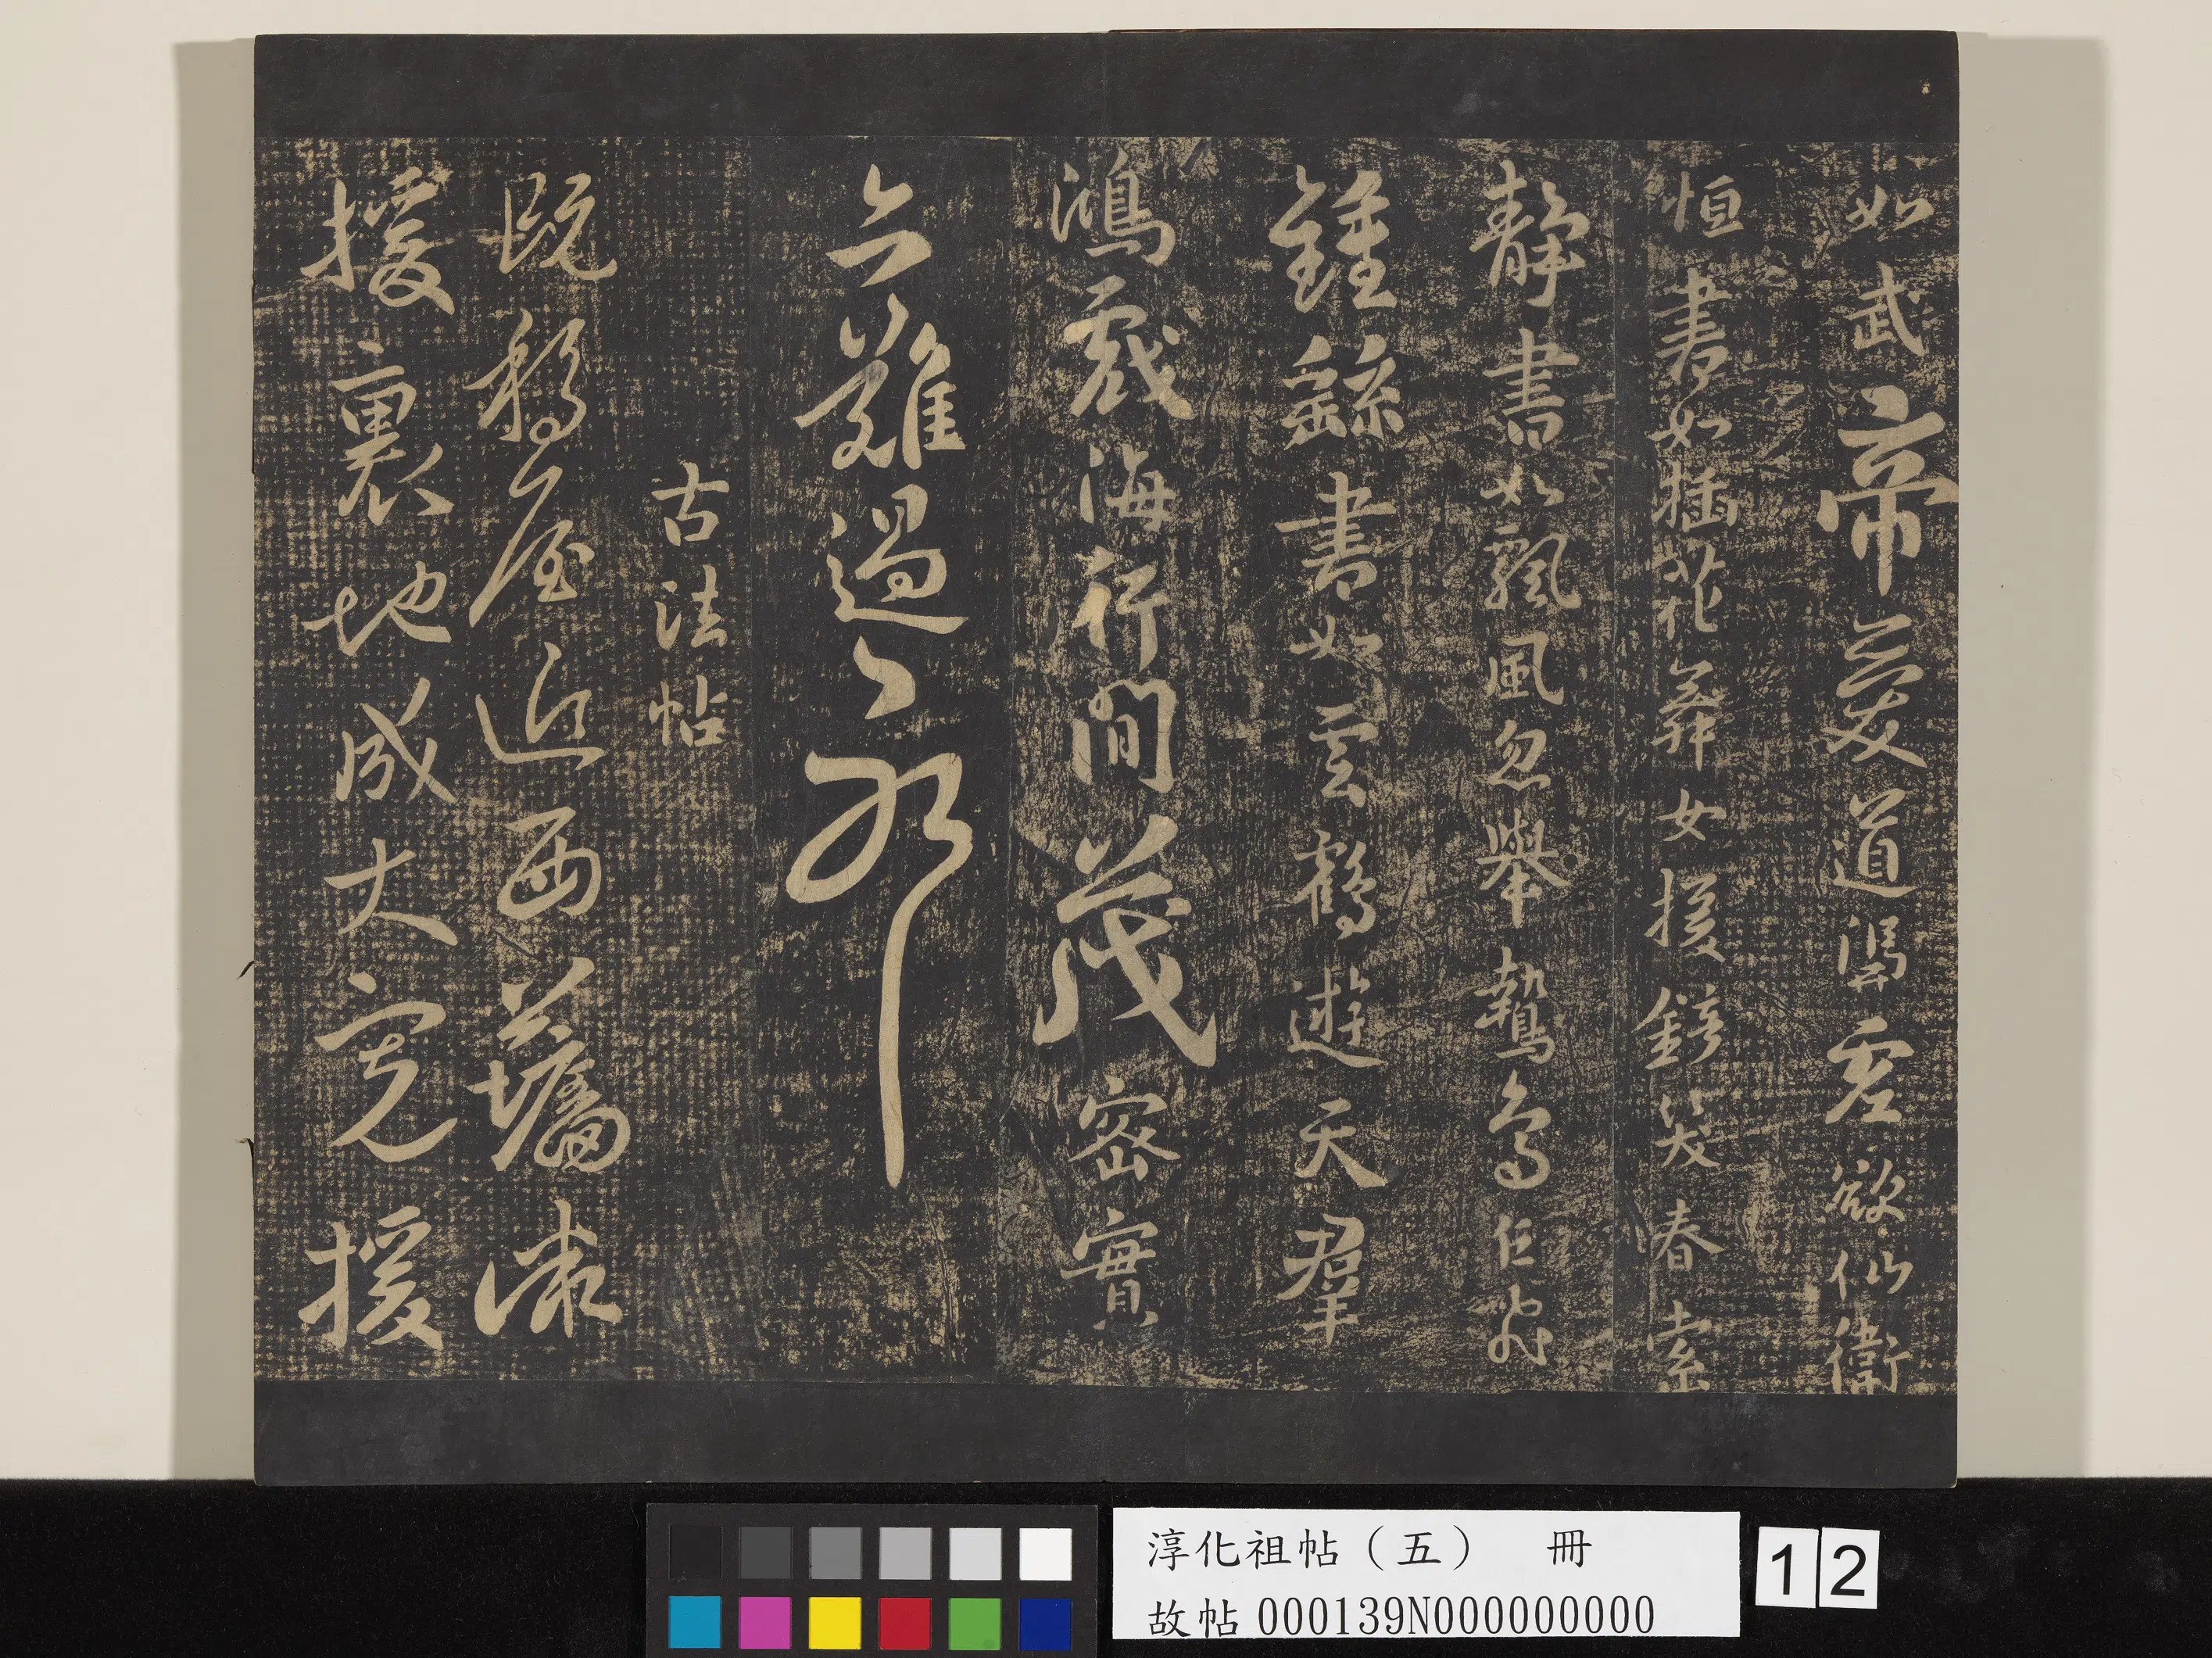 如武帝愛道憑虛欲仙衛
恒書如插花舞女援鏡笑春索
靜書如飄風忽舉鷙鳥乍飛
鍾繇書如雲鶴遊天羣
鴻戲海行間茂密實
亦難過耶
古法帖
既移屋近西
援裏地成大寬援
淳化祖帖（五） 冊
故帖000139N000000000
12